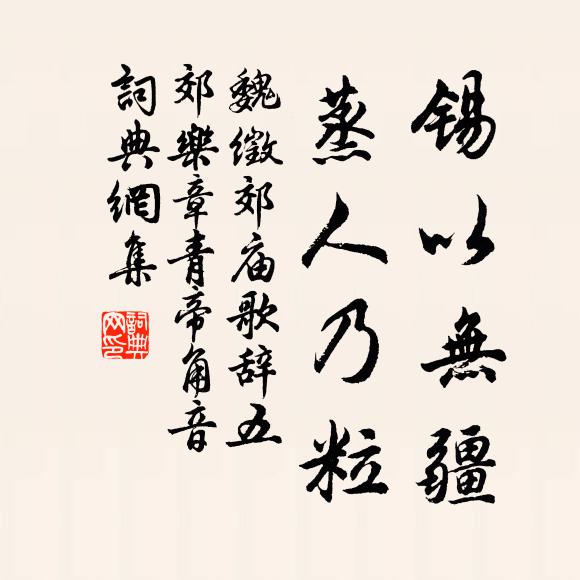 錫以無疆
蒸人乃粒
魏徵郊庙歌辞五
郊樂章青帝角音
詞典網集
詞典
网印